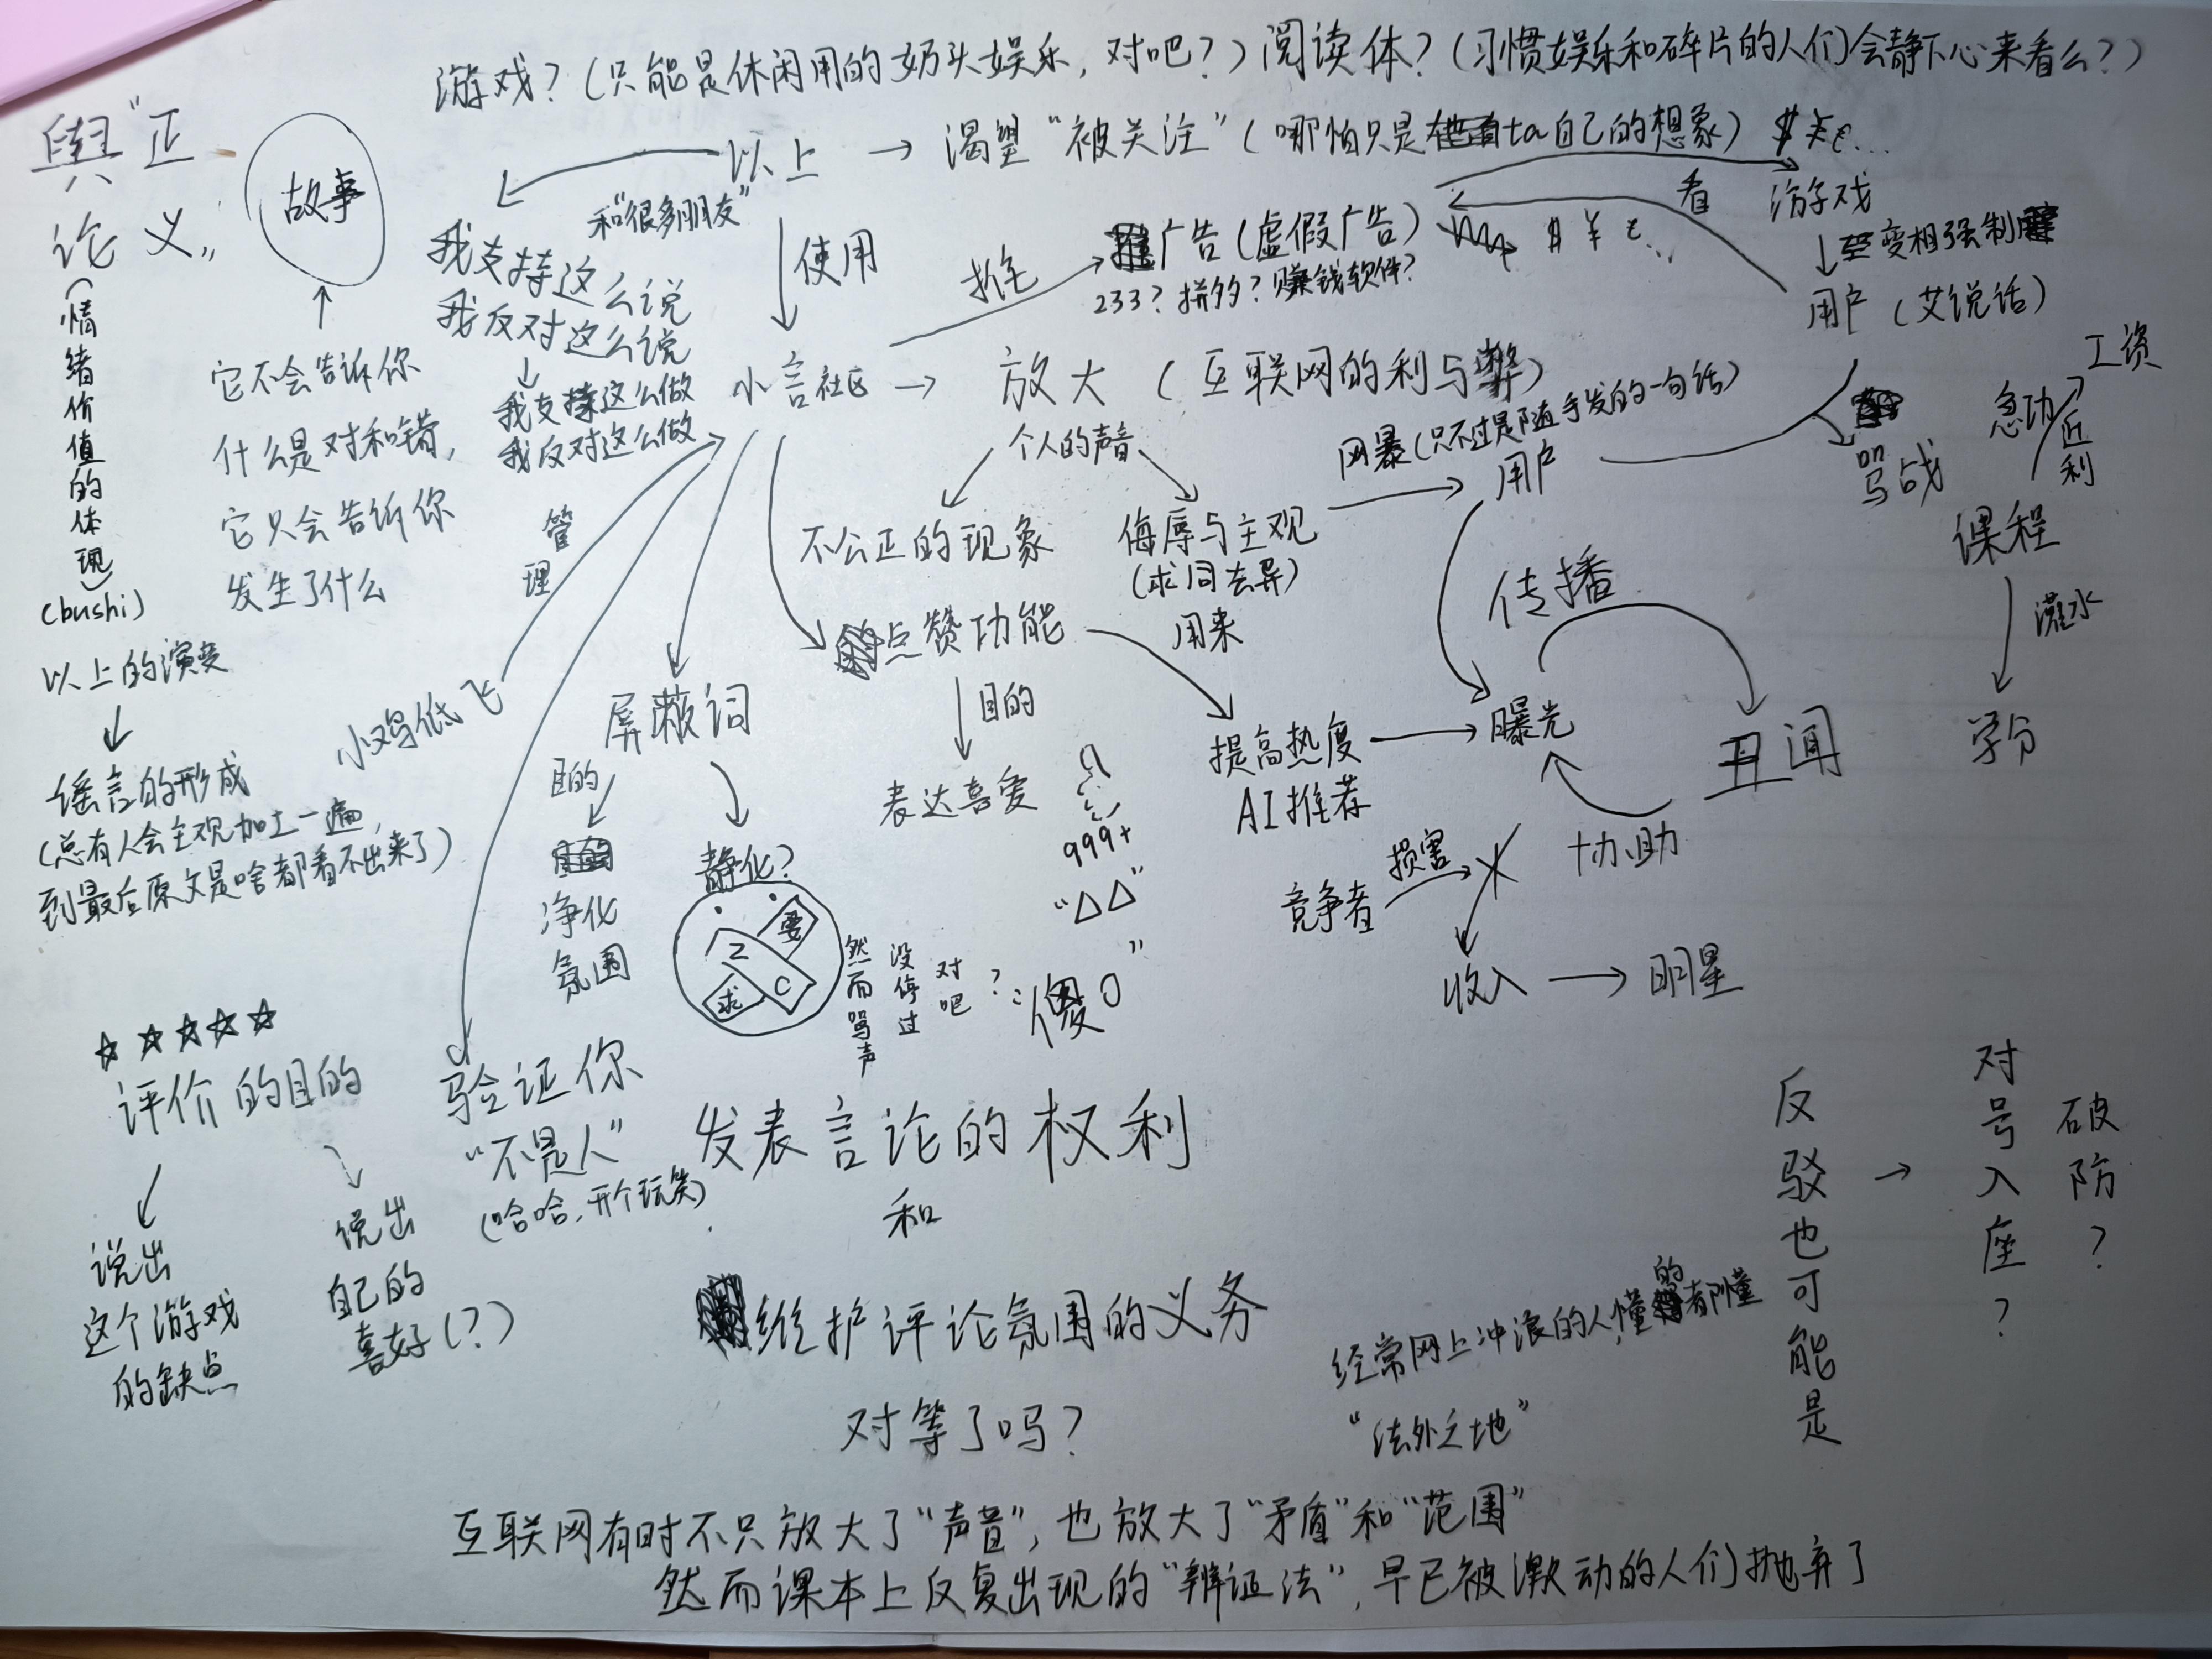 游戏？（只能是休闲用的奶头娱乐，对吧？）阅读体？（习惯娱乐和碎片的人们会静下心来看么？）
舆论
“正义”
（情绪价值的体现）
（bushi）
故事
它不会告诉你
什么是对和错，
它只会告诉你
发生了什么
以上 → 渴望“被关注”（哪怕只是ta自己的想象）
$ ¥ €…
和“很多朋友”
我支持这么说
我反对这么说
我支持这么做
我反对这么做
使用
推
广告（虚假广告）
$ ¥ €…
233？拼多？赚钱软件？
看
游戏
变相强制
用户（艾说话）
小言社区 → 放大（互联网的利与弊）
个人的声音
网暴（只不过是随手发的一句话）
用户
骂战
工资
急功近利
课程
灌水
学分
不公正的现象
侮辱与主观
（求同去异）
用来
传播
管理
小鸡低飞
点赞功能
目的
表达喜爱
提高热度
AI推荐
曝光
丑闻
协助
竞争者
损害
收入 → 明星
屏蔽词
目的
净化
氛围
静化？
要
Z
C
求
然而骂声
没停过
对吧？
999+
“△△”
“傻〇”
以上的演变
谣言的形成
（总有人会主观加工一遍，
到最后原文是啥都看不出来了）
☆☆☆☆☆
评价的目的
说出
这个游戏
的缺点
说出
自己的
喜好（？）
验证你
“不是人”
（哈哈，开个玩笑）
发表言论的权利
和
维护评论氛围的义务
对等了吗？
经常网上冲浪的人，懂的都懂
“法外之地”
反驳也可能是
→
对号入座？
破防？
互联网有时不只放大了“声音”，也放大了“矛盾”和“范围”
然而课本上反复出现的“辨证法”，早已被激动的人们抛弃了